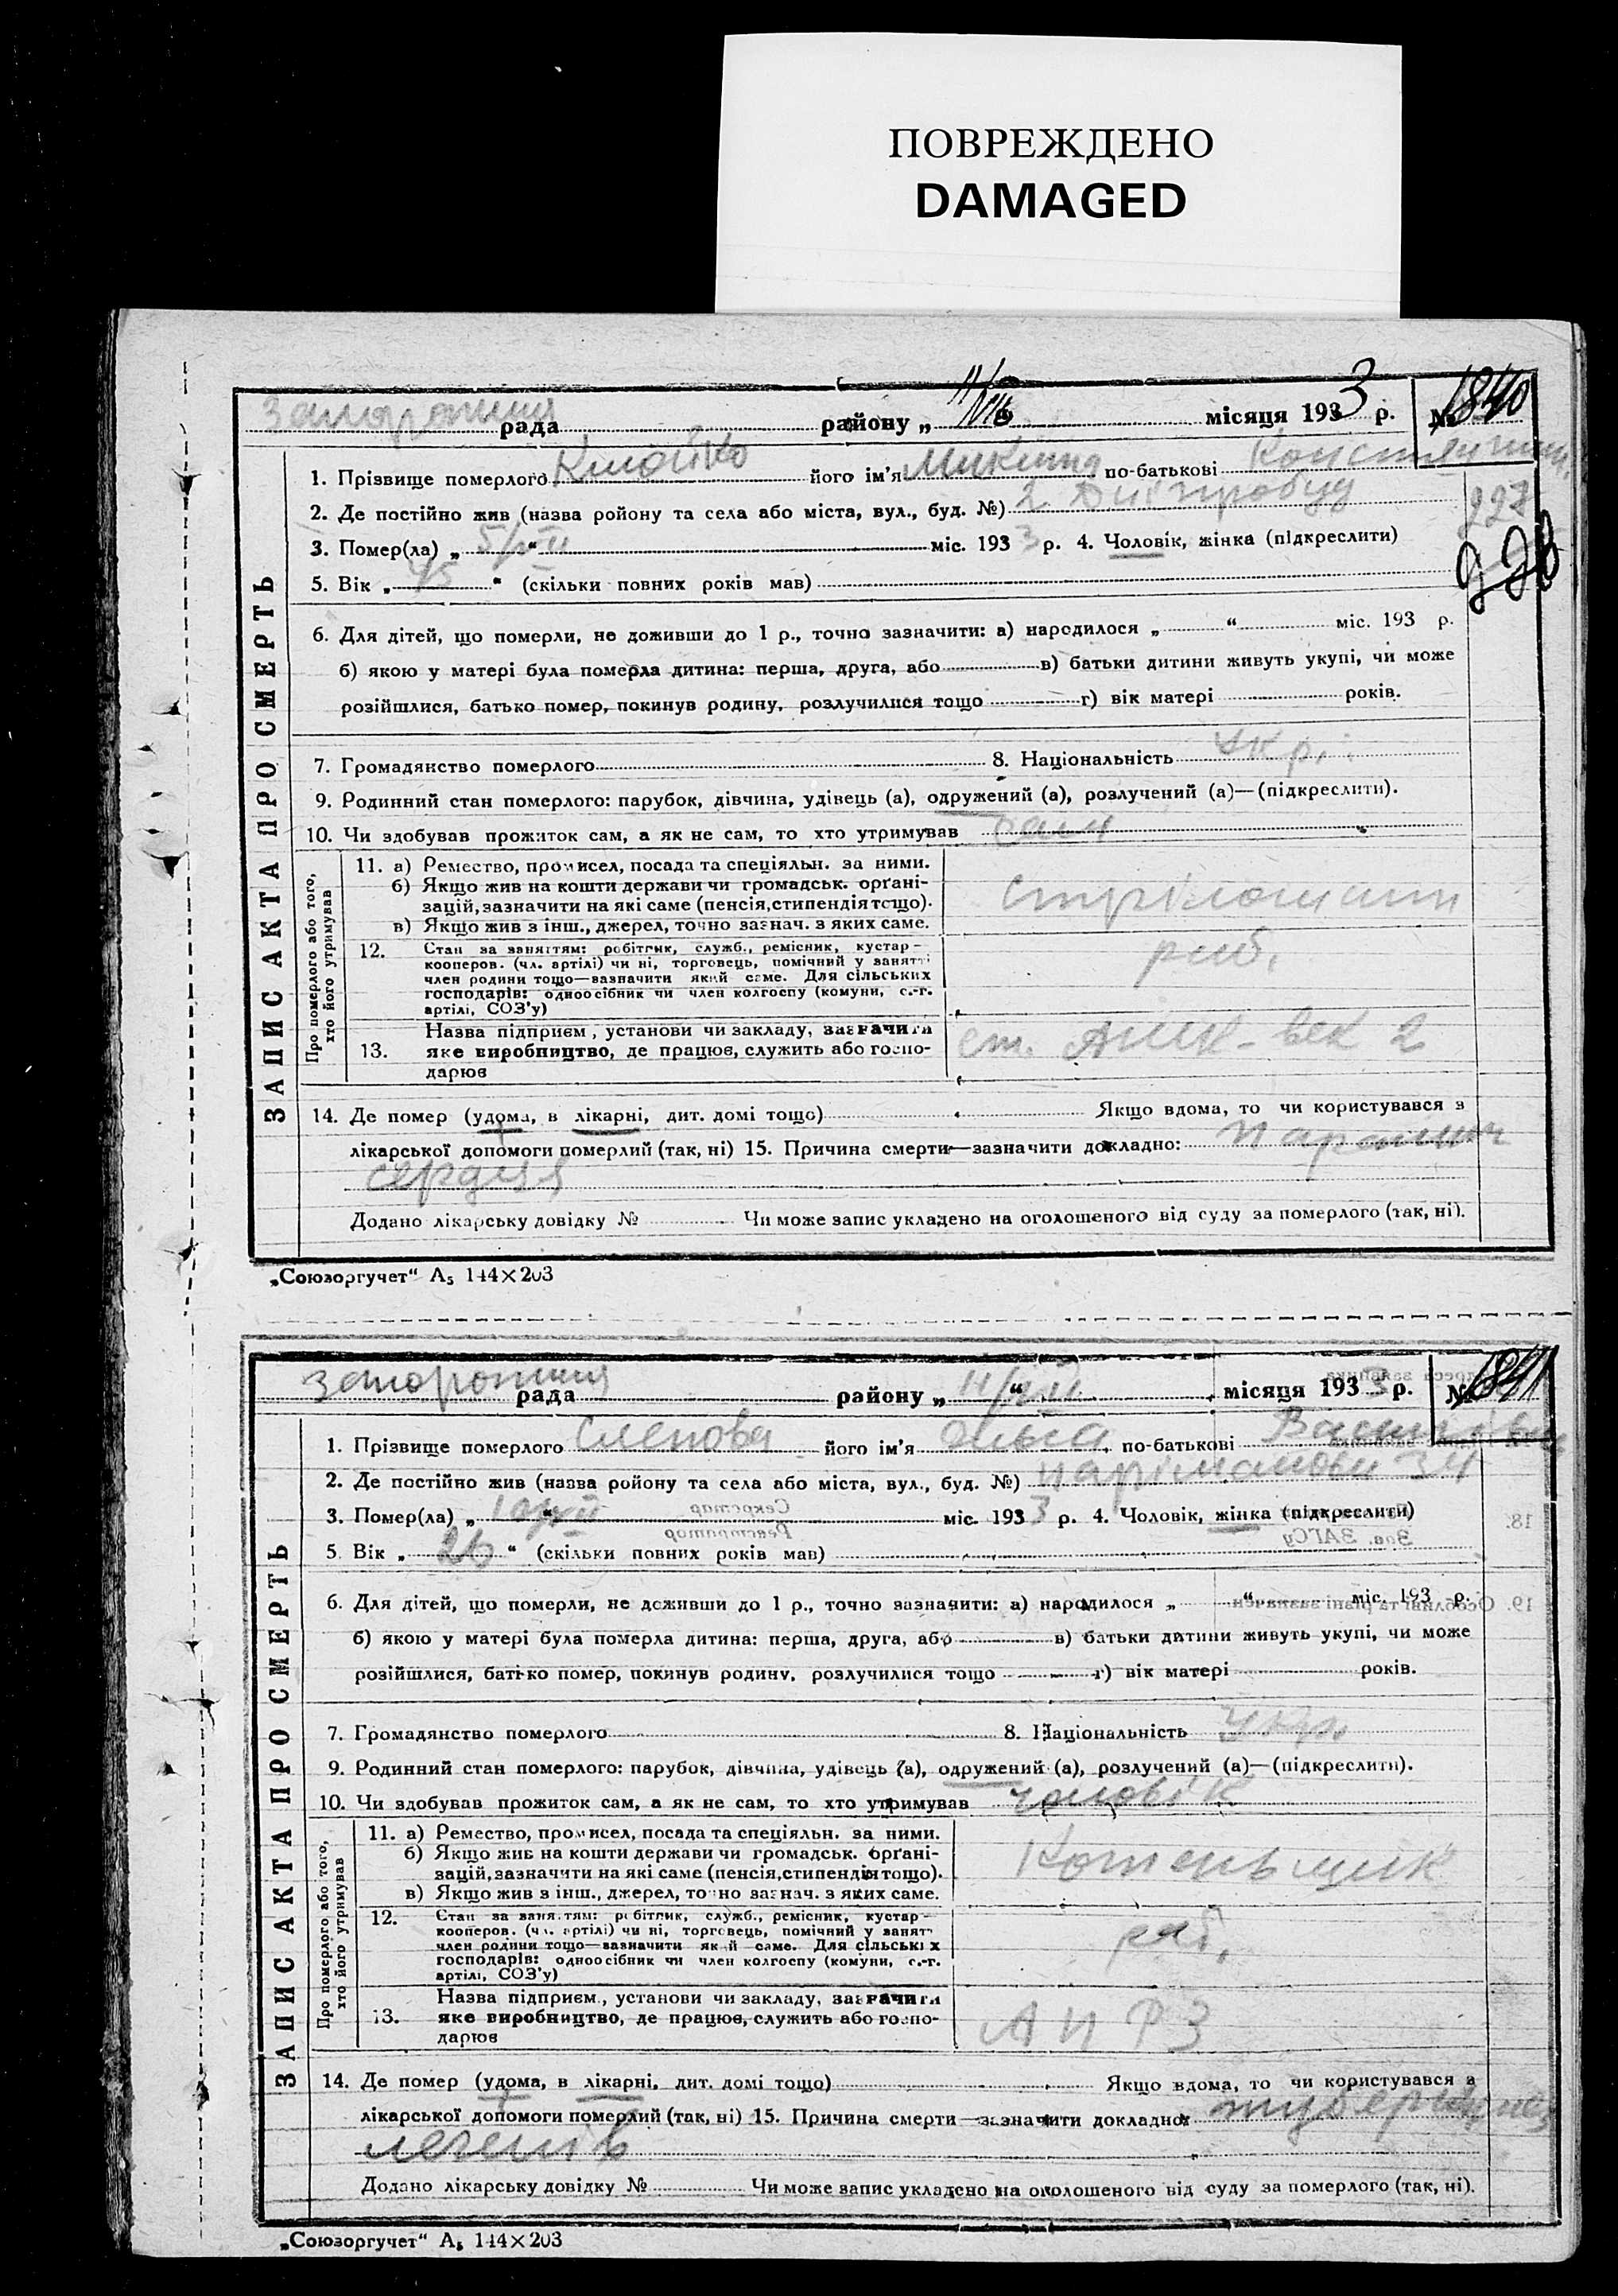 ПОВРЕЖДЕНО
DAMAGED
рада району „ місяця 193 3 р. № 1840
1. Прізвище померлого його ім'я Микита по-батькові
2. Де постійно жив (назва ройону та села або міста, вул., буд. №) 2 Дніпробуд
3. Помер(ла) „ 5/VII “ міс. 193 3 р. 4. Чоловік, жінка (підкреслити)
5. Вік „ 45 “ (скільки повних років мав)
6. Для дітей, що померли, не доживши до 1 р., точно зазначити: а) народилося „ “ міс. 193 р.
б) якою у матері була померла дитина: перша, друга, або в) батьки дитини живуть укупі, чи може
розійшлися, батько помер, покинув родину, розлучилися тощо г) вік матері років.
7. Громадянство померлого 8. Національність Укр.
9. Родинний стан померлого: парубок, дівчина, удівець (а), одружений (а), розлучений (а)—(підкреслити).
10. Чи здобував прожиток сам, а як не сам, то хто утримував сам
ЗАПИС АКТА ПРО СМЕРТЬ
Про померлого або того,
хто його утримував
11. а) Ремество, промисел, посада та спеціяльн. за ними.
б) Якщо жив на кошти держави чи громадськ. орґані-
зацій, зазначити на які саме (пенсія, стипендія тощо).
в) Якщо жив з інш., джерел, точно зазнач. з яких саме.
12. Стан за заняттям: робітник, служб., ремісник, кустар—
кооперов. (чл. артілі) чи ні, торговець, помічний у занятті
член родини тощо—зазначити який саме. Для сільських
господарів: одноосібник чи член колгоспу (комуни, с.-г.
артілі, СОЗ'у)
роб.
Назва підприєм., установи чи закладу, зазначити
13. яке виробництво, де працює, служить або госпо-
дарює
14. Де помер (удома, в лікарні, дит. домі тощо) Якщо вдома, то чи користувався з
лікарської допомоги померлий (так, ні) 15. Причина смерти—зазначити докладно: параліч
серця
Додано лікарську довідку № Чи може запис укладено на оголошеного від суду за померлого (так, ні).
„Союзоргучет“ А₅ 144×203
рада району „ 11/VII “ місяця 193 3 р. № 1841
1. Прізвище померлого Слепова його ім'я Ольга по-батькові
2. Де постійно жив (назва ройону та села або міста, вул., буд. №) Наріманова 34
3. Помер(ла) „ “ міс. 193 3 р. 4. Чоловік, жінка (підкреслити)
5. Вік „ 26 “ (скільки повних років мав)
6. Для дітей, що померли, не доживши до 1 р., точно зазначити: а) народилося „ “ міс. 193 р.
б) якою у матері була померла дитина: перша, друга, або в) батьки дитини живуть укупі, чи може
розійшлися, батько помер, покинув родину, розлучилися тощо г) вік матері років.
7. Громадянство померлого 8. Національність Укр.
9. Родинний стан померлого: парубок, дівчина, удівець (а), одружений (а), розлучений (а)—(підкреслити).
10. Чи здобував прожиток сам, а як не сам, то хто утримував чоловік
ЗАПИС АКТА ПРО СМЕРТЬ
Про померлого або того,
хто його утримував
11. а) Ремество, промисел, посада та спеціяльн. за ними.
б) Якщо жив на кошти держави чи громадськ. орґані-
зацій, зазначити на які саме (пенсія, стипендія тощо).
в) Якщо жив з інш., джерел, точно зазнач. з яких саме.
12. Стан за заняттям: робітник, служб., ремісник, кустар—
кооперов. (чл. артілі) чи ні, торговець, помічний у занятті
член родини тощо—зазначити який саме. Для сільських
господарів: одноосібник чи член колгоспу (комуни, с.-г.
артілі, СОЗ'у)
роб.
Назва підприєм., установи чи закладу, зазначити
13. яке виробництво, де працює, служить або госпо-
дарює
14. Де помер (удома, в лікарні, дит. домі тощо) Якщо вдома, то чи користувався з
лікарської допомоги померлий (так, ні) 15. Причина смерти—зазначити докладно: туберкульоз
легенів
Додано лікарську довідку № Чи може запис укладено на оголошеного від суду за померлого (так, ні).
„Союзоргучет“ А₅ 144×203